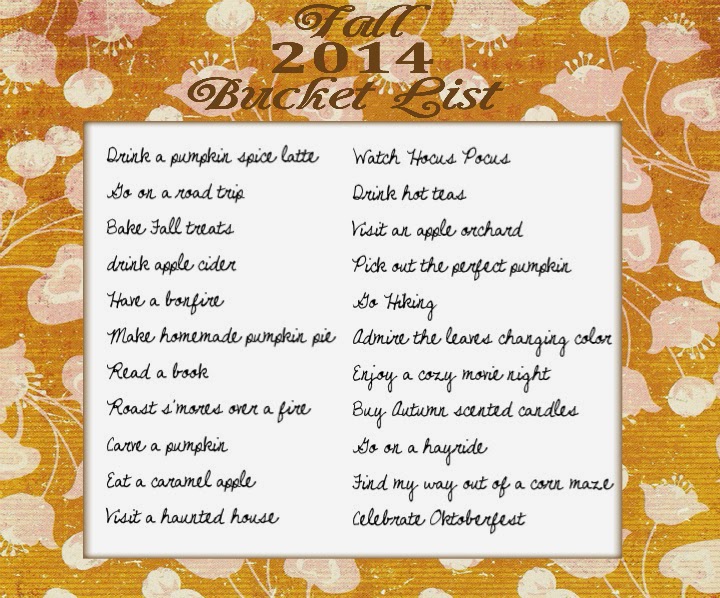 Fall
2014
Bucket List
Drink a pumpkin spice latte
Go on a road trip
Bake Fall treats
drink apple cider
Have a bonfire
Make homemade pumpkin pie
Read a book
Roast s'mores over a fire
Carve a pumpkin
Eat a caramel apple
Visit a haunted house
Watch Hocus Pocus
Drink hot teas
Visit an apple orchard
Pick out the perfect pumpkin
Go Hiking
Admire the leaves changing color
Enjoy a cozy movie night
Buy Autumn scented candles
Go on a hayride
Find my way out of a corn maze
Celebrate Oktoberfest